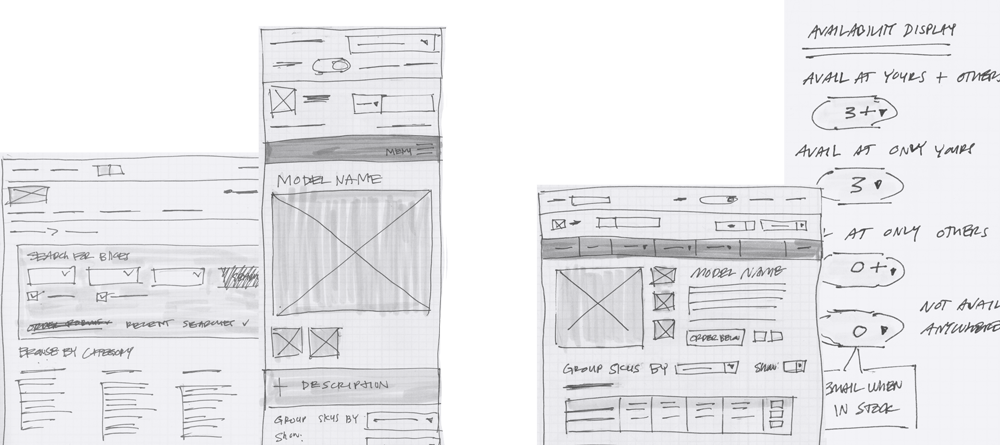 SEARCH FOR BIKES
SEARCH
ORDER FORMS
RECENT SEARCHES
BROWSE BY CATEGORY
MENU
MODEL NAME
+ DESCRIPTION
GROUP SKUS BY
SHOW:
MODEL NAME
ORDER BELOW
GROUP SKUS BY
SHOW
AVAILABILITY DISPLAY
AVAIL AT YOURS + OTHERS
3+
AVAIL AT ONLY YOURS
3
AT ONLY OTHERS
0+
NOT AVAIL
ANYWHERE
0
EMAIL WHEN
IN STOCK